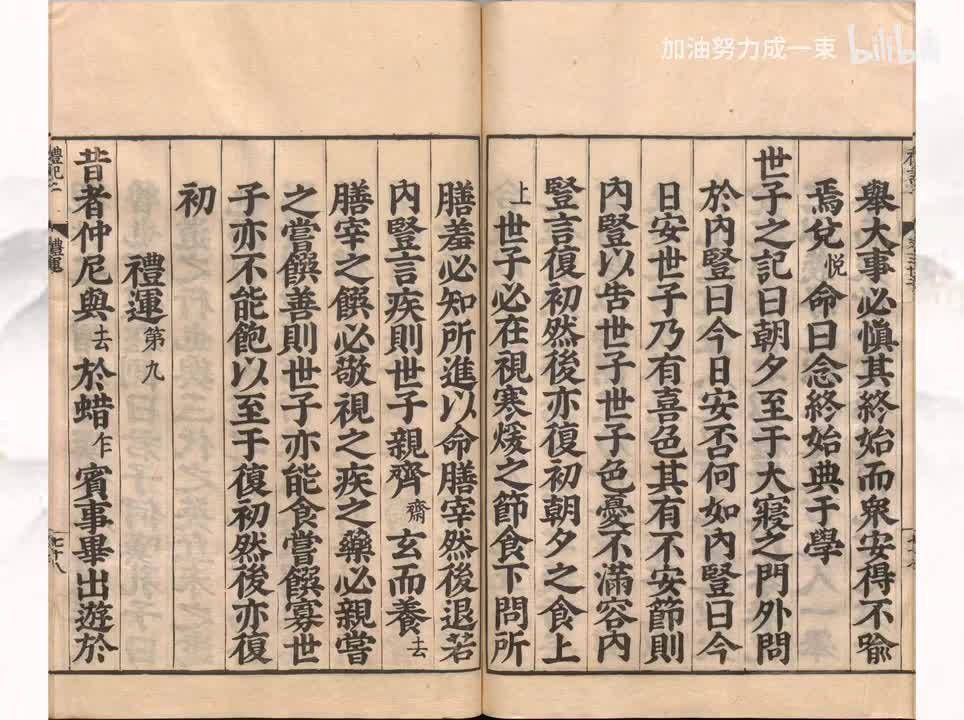 加油努力成一束 bilibili
舉大事必慎其終始而衆安得不喻
焉兌悅命曰念終始典于學
世子之記曰朝夕至于大寢之門外問
於内豎曰今日安否何如内豎曰今
日安世子乃有喜色其有不安節則
内豎以告世子世子色憂不滿容内
豎言復初然後亦復初朝夕之食上
上世子必在視寒煖之節食下問所
膳羞必知所進以命膳宰然後退若
内豎言疾則世子親齊齋玄而養去
膳宰之饌必敬視之疾之藥必親嘗
之嘗饌善則世子亦能食嘗饌寡世
子亦不能飽以至于復初然後亦復
初
禮運第九
昔者仲尼與去於蜡乍賓事畢出遊於
禮記二
禮運
七十八